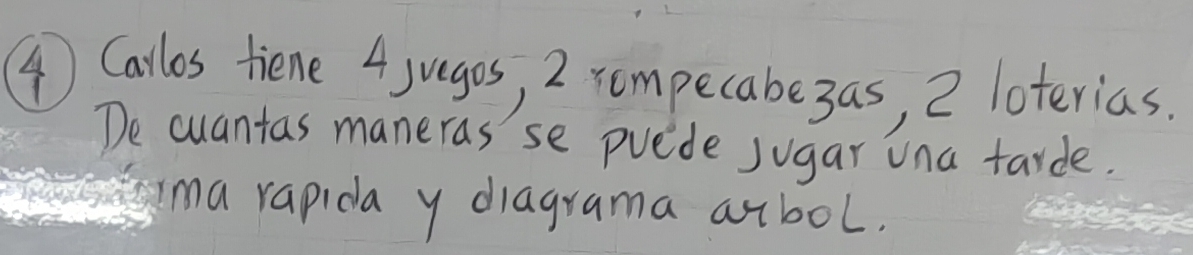 ④ Carlos tiene 4 juegos, 2 rompecabezas, 2 loterias.
De cuantas maneras se puede jugar una tarde.
rapida y diagrama arbol.